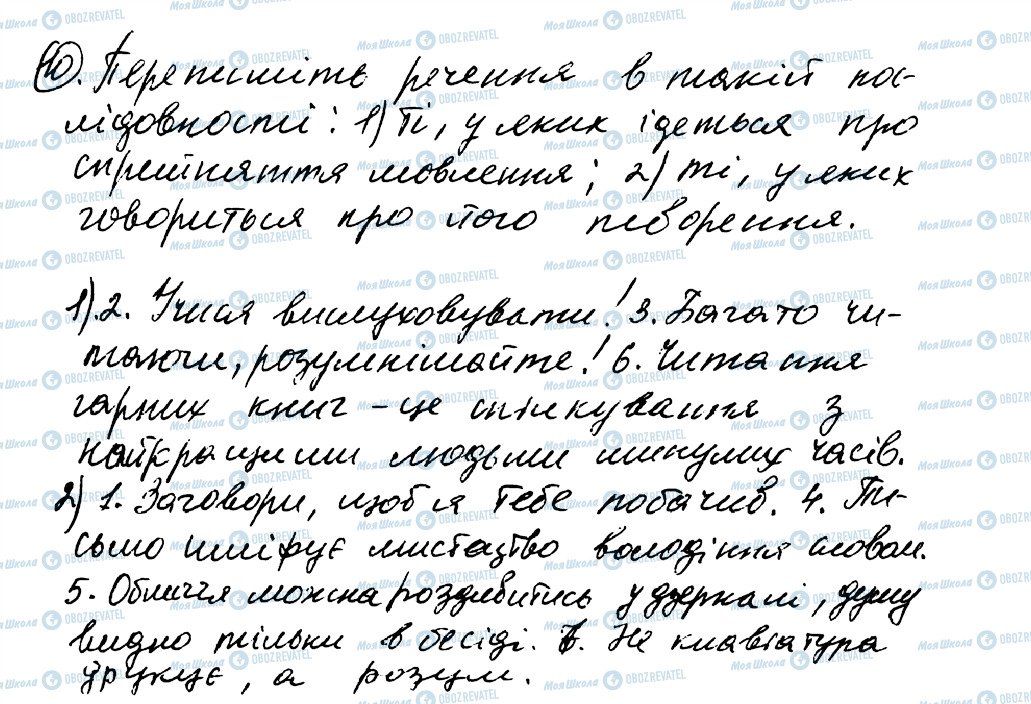 10. Перепишіть речення в такій пос-
лідовності: 1) Ті, у яких ідеться про
сприйняття мовлення; 2) ті, у яких
говориться про його творення.
1). 2. Учися вислуховувати! 3. Багато чи-
таючи, розумнішайте! 6. Читання
гарних книг – це спілкування з
найкращими людьми минулих часів.
2) 1. Заговори, щоб я тебе побачив. 4. Пи-
сьмо шліфує мистецтво володіння словом.
5. Обличчя можна роздивитись у дзеркалі, душу
видно тільки в бесіді. 7. Не клавіатура
друкує, а розум.